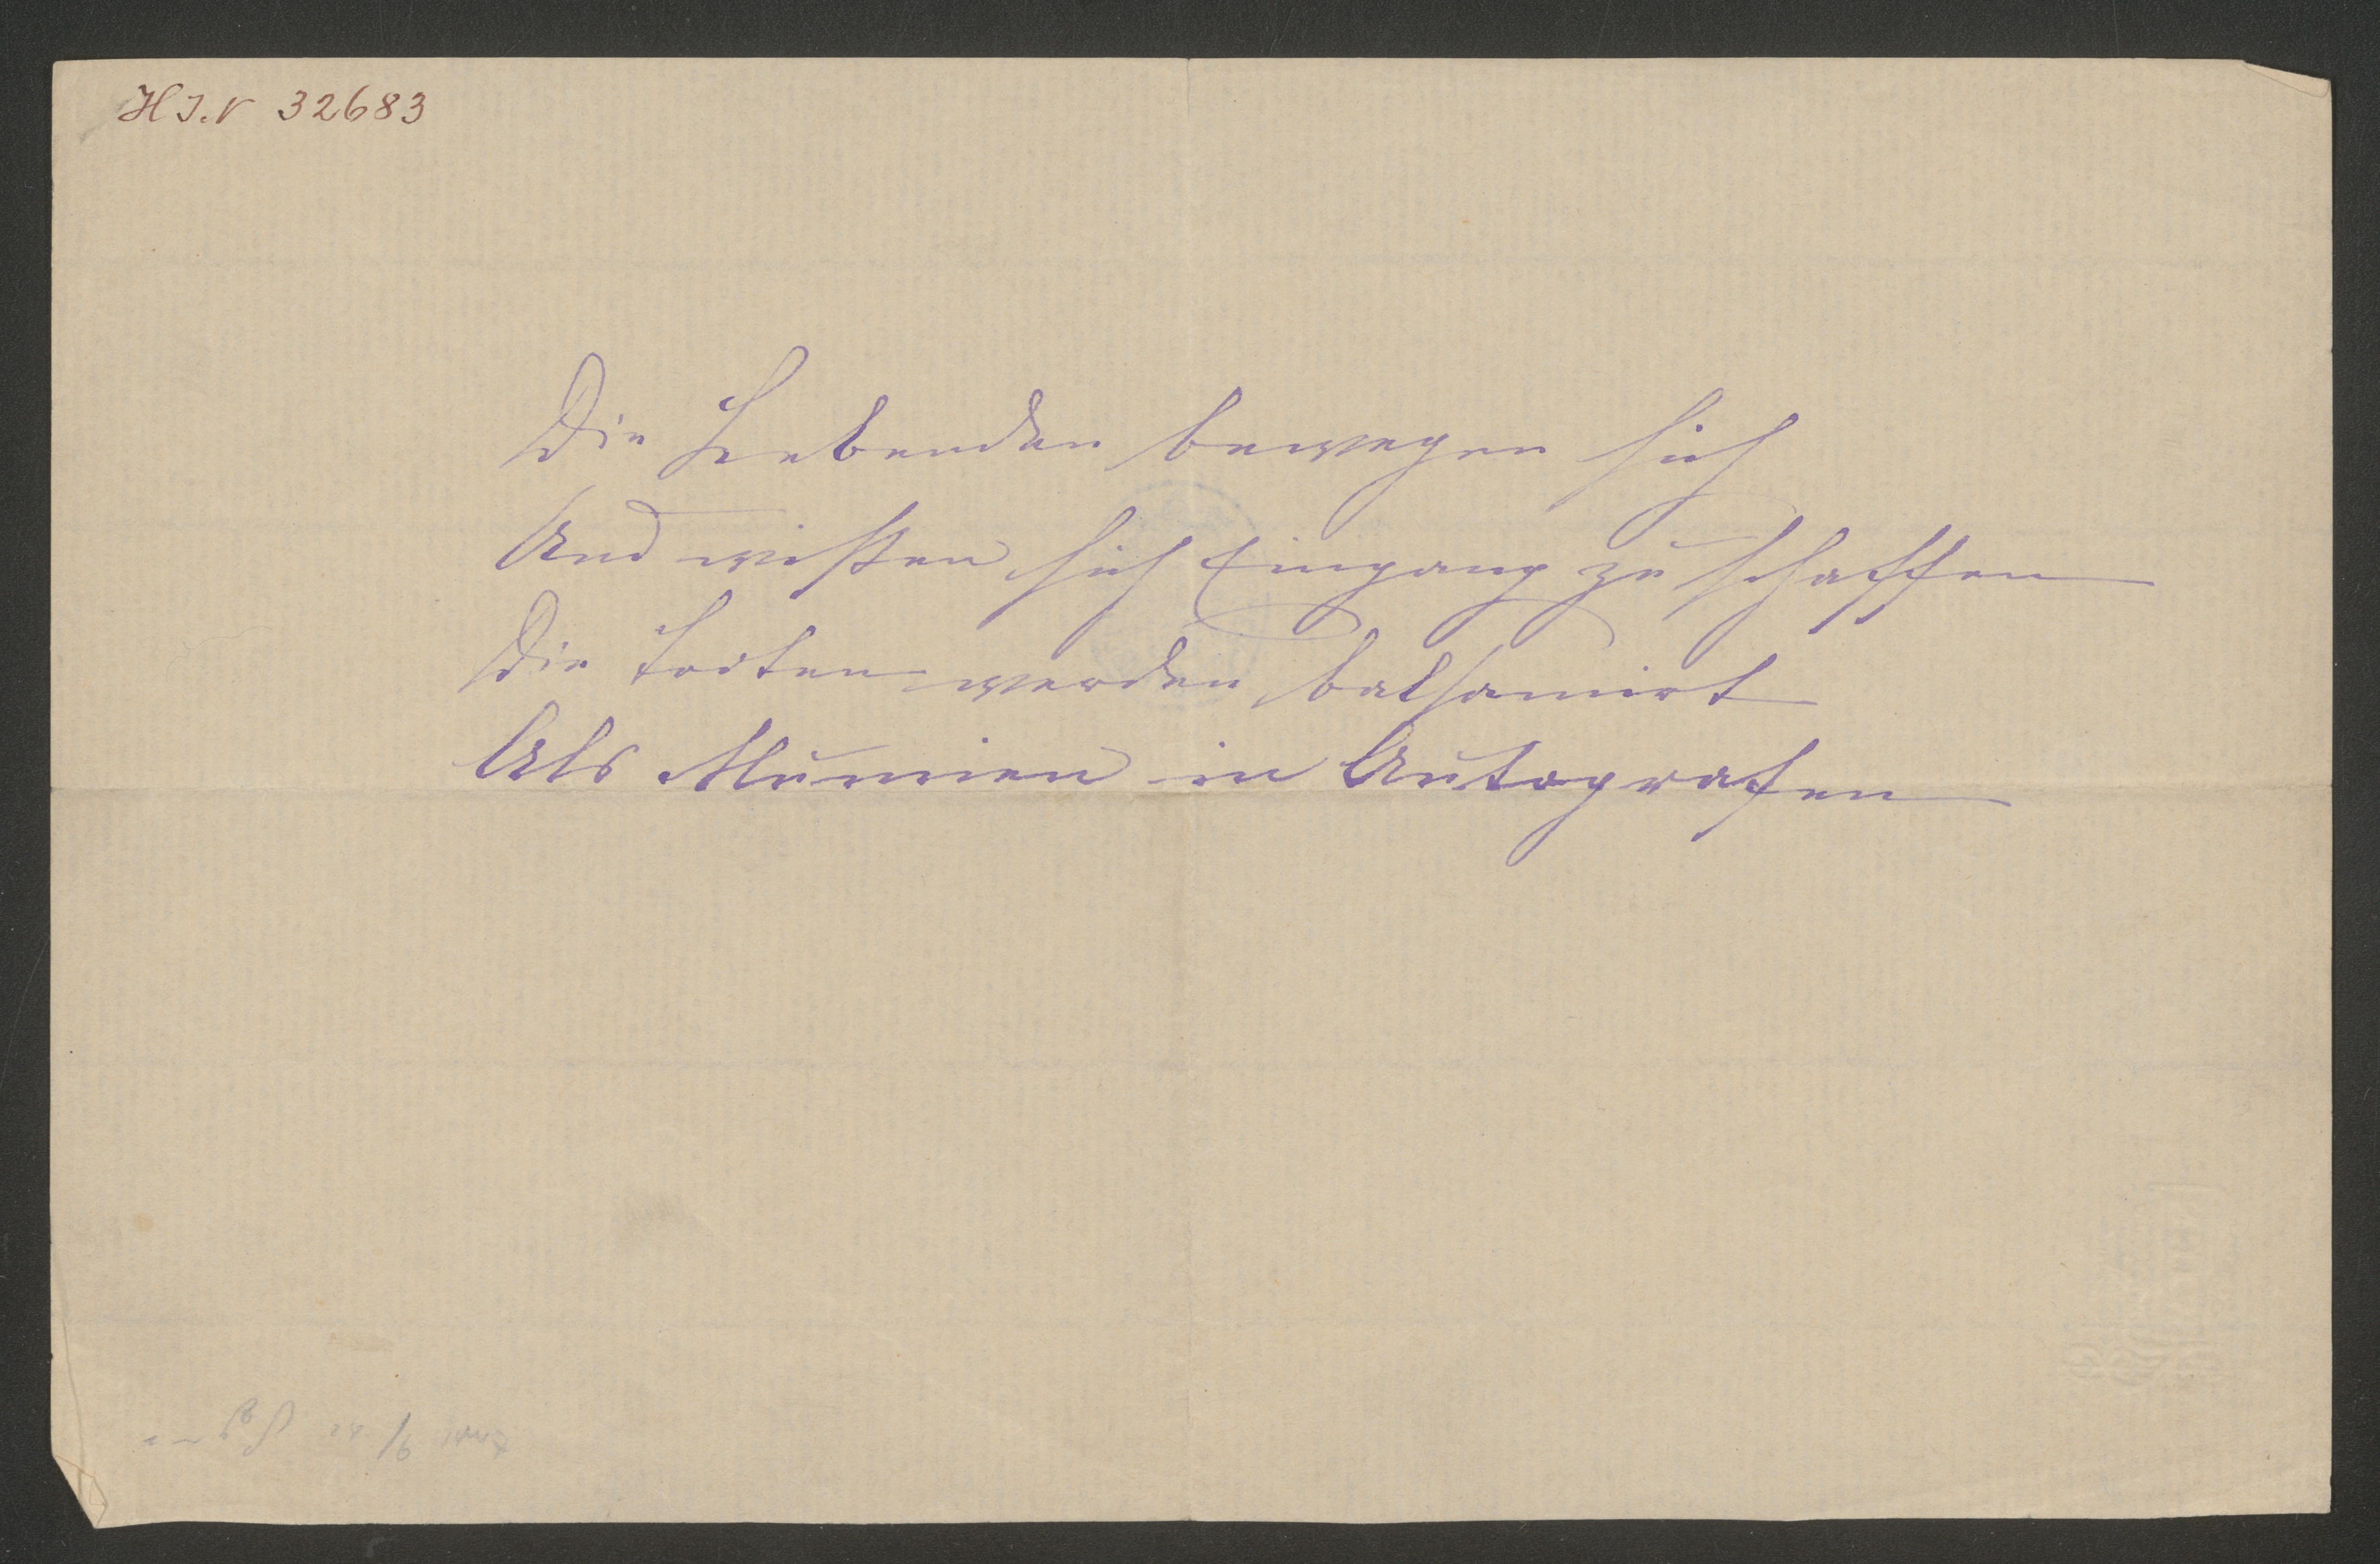 H I.N 32683
Die Lebenden bewegen sich
Und wissen sich Eingang zu schaffen
Die Todten werden balsamirt
Als Mumien in Autografen